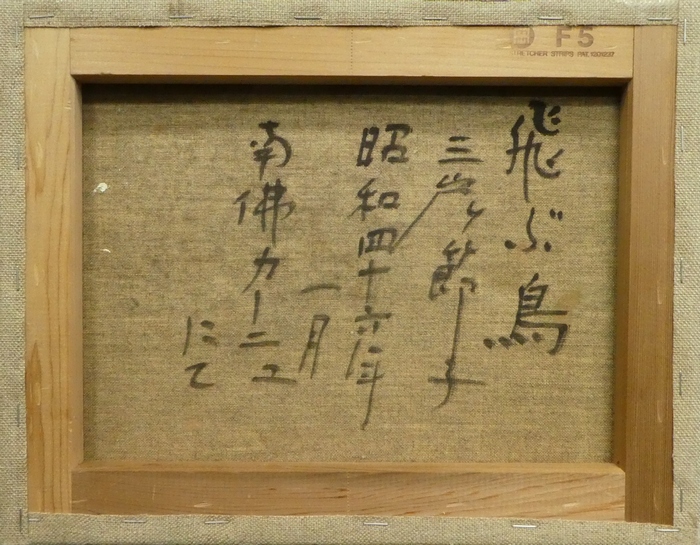 飛ぶ鳥
三岸節子
昭和四十六年
一月
南佛カーニユ
にて
F5